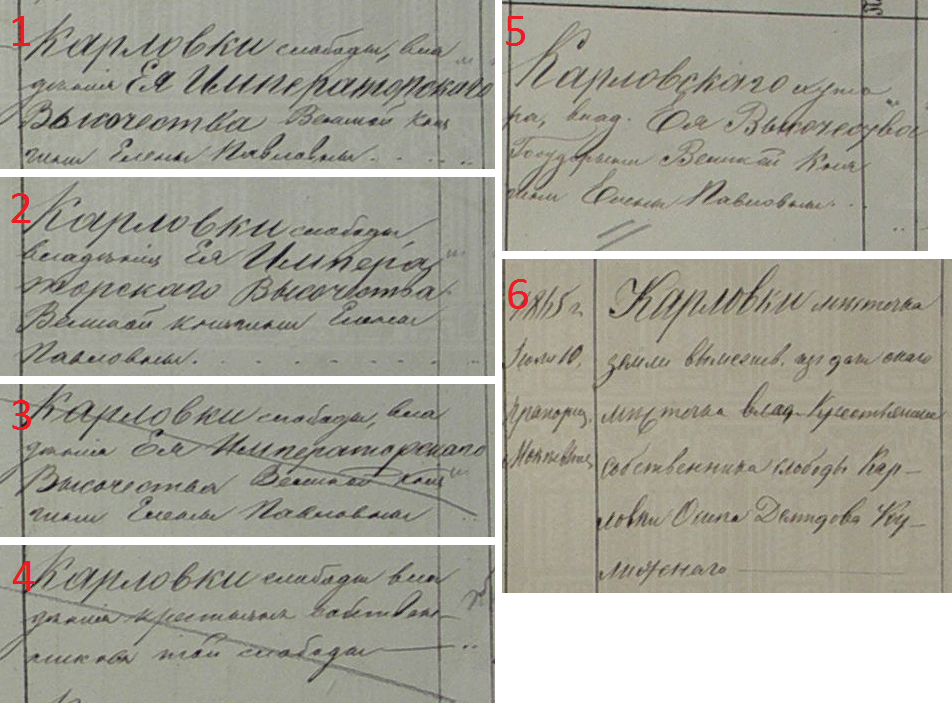 1
Карловки слободы, вла
дѣнія Ея Императорскаго
Высочества Великой Кня
гини Елены Павловны . . . .
2
Карловки слободы,
владѣнія Ея Импера
торскаго Высочества
Великой Княгини Елены
Павловны . . . . . . .
3
Карловки слободы, вла
дѣнія Ея Императорскаго
Высочества Великой Кня
гини Елены Павловны
4
Карловки слободы вла
дѣнія крестьянъ собствен-
никовъ той слободы
5
Карловскаго хуто
ра, влад. Ея Высочества
Государыни Великой Кня
гини Елены Павловны . . .
6
Карловки мѣстечка
земли вымежев. изъ дачи онаго
мѣстечка влад. Крестьянина
собственника слободы Кар-
ловки Осипа Демидова
1865 г.
10.